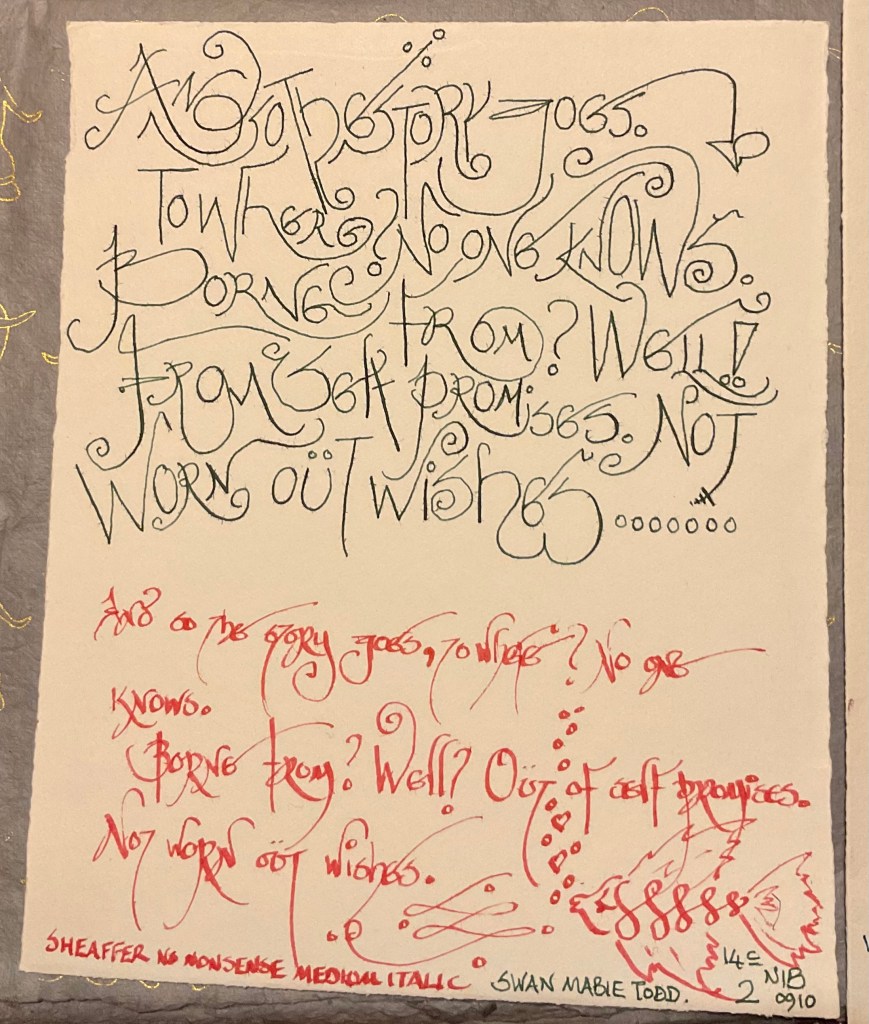 And so the story goes.
To where? No one knows.
Borne
from? Well!
From self promises. Not
worn oüt wishes .......
And so the story goes, to where? No one
knows.
Borne from? Well? Oüt of self promises.
Not worn oüt wishes.
SHEAFFER NO NONSENSE MEDIUM ITALIC
SWAN MABIE TODD.
14c
2 NIB
0910